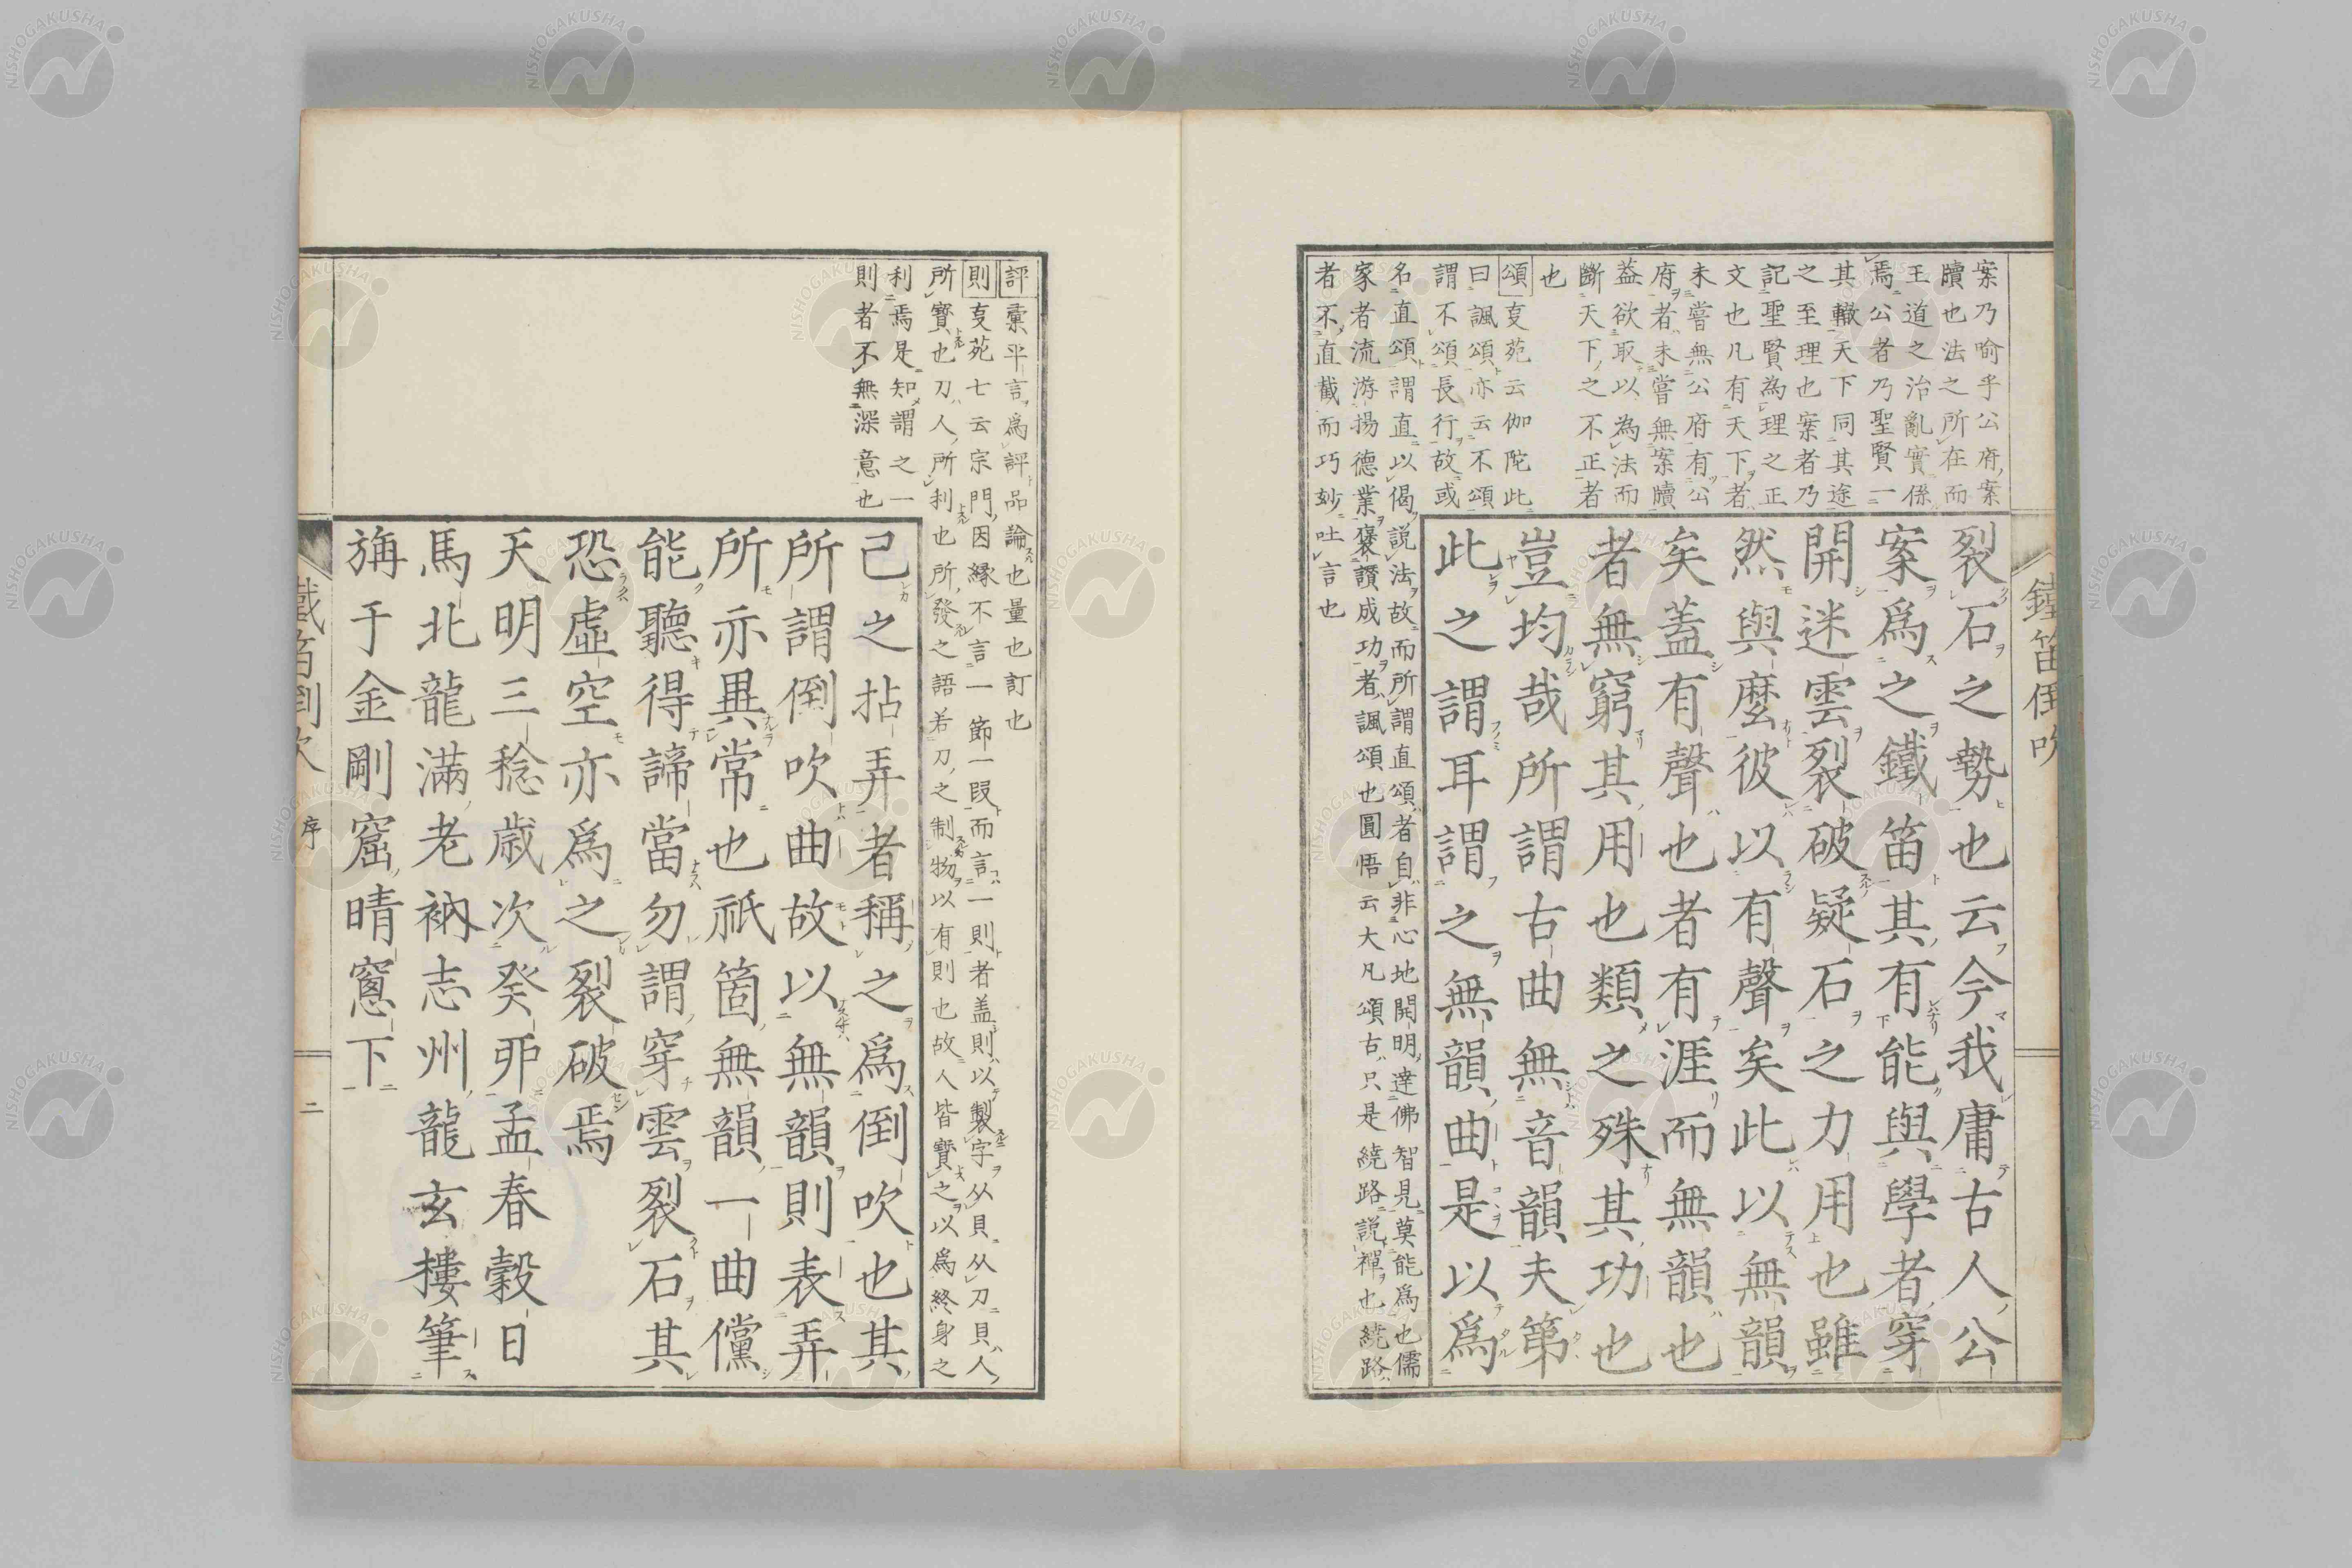 鐵笛倒吹
案乃喻乎公府案
牘也法之所在而
王道之治亂實係
焉公者乃聖賢一
其轍天下同其途
之至理也案者乃
記聖賢為理之正
文也凡有天下者
未嘗無公府有公
府者未嘗無案牘
葢欲取以為法而
斷天下之不正者
也
頌叓苑云伽陀此
曰諷頌亦云不頌
謂不頌長行故或
名直頌謂直以偈說法故而所謂直頌者自非心地開明達佛智見莫能爲也儒
家者流游揚德業褒讚成功者諷頌也圓悟云大凡頌古只是繞路說禪也繞路
者不直截而巧妙吐言也
裂石之勢也云今我庸古人公
案爲之鐵笛其有能與學者穿
開迷雲裂破疑石之力用也雖
然與麼彼以有聲矣此以無韻
矣蓋有聲也者有涯而無韻也
者無窮其用也類之殊其功也
豈均哉所謂古曲無音韻夫第
此之謂耳謂之無韻曲是以爲
評彙平言爲評品論也量也訂也
則叓苑七云宗門因緣不言一節一段而言一則者盖則以製字从貝从刀貝人
所寶也刀人所利也所發之語若刀之制物以有則也故人皆寶之以爲終身之
利焉是知謂之一
則者不無深意也
己之拈弄者稱之爲倒吹也其
所謂倒吹曲故以無韻則表弄
所亦異常也祇箇無韻一曲儻
能聽得諦當勿謂穿雲裂石其
恐虛空亦爲之裂破焉
天明三稔歲次癸夘孟春穀日
馬北龍滿老衲志州龍玄樓筆
旃于金剛窟晴窻下
鐵笛倒吹 序 二
NISHOGAKUSHA